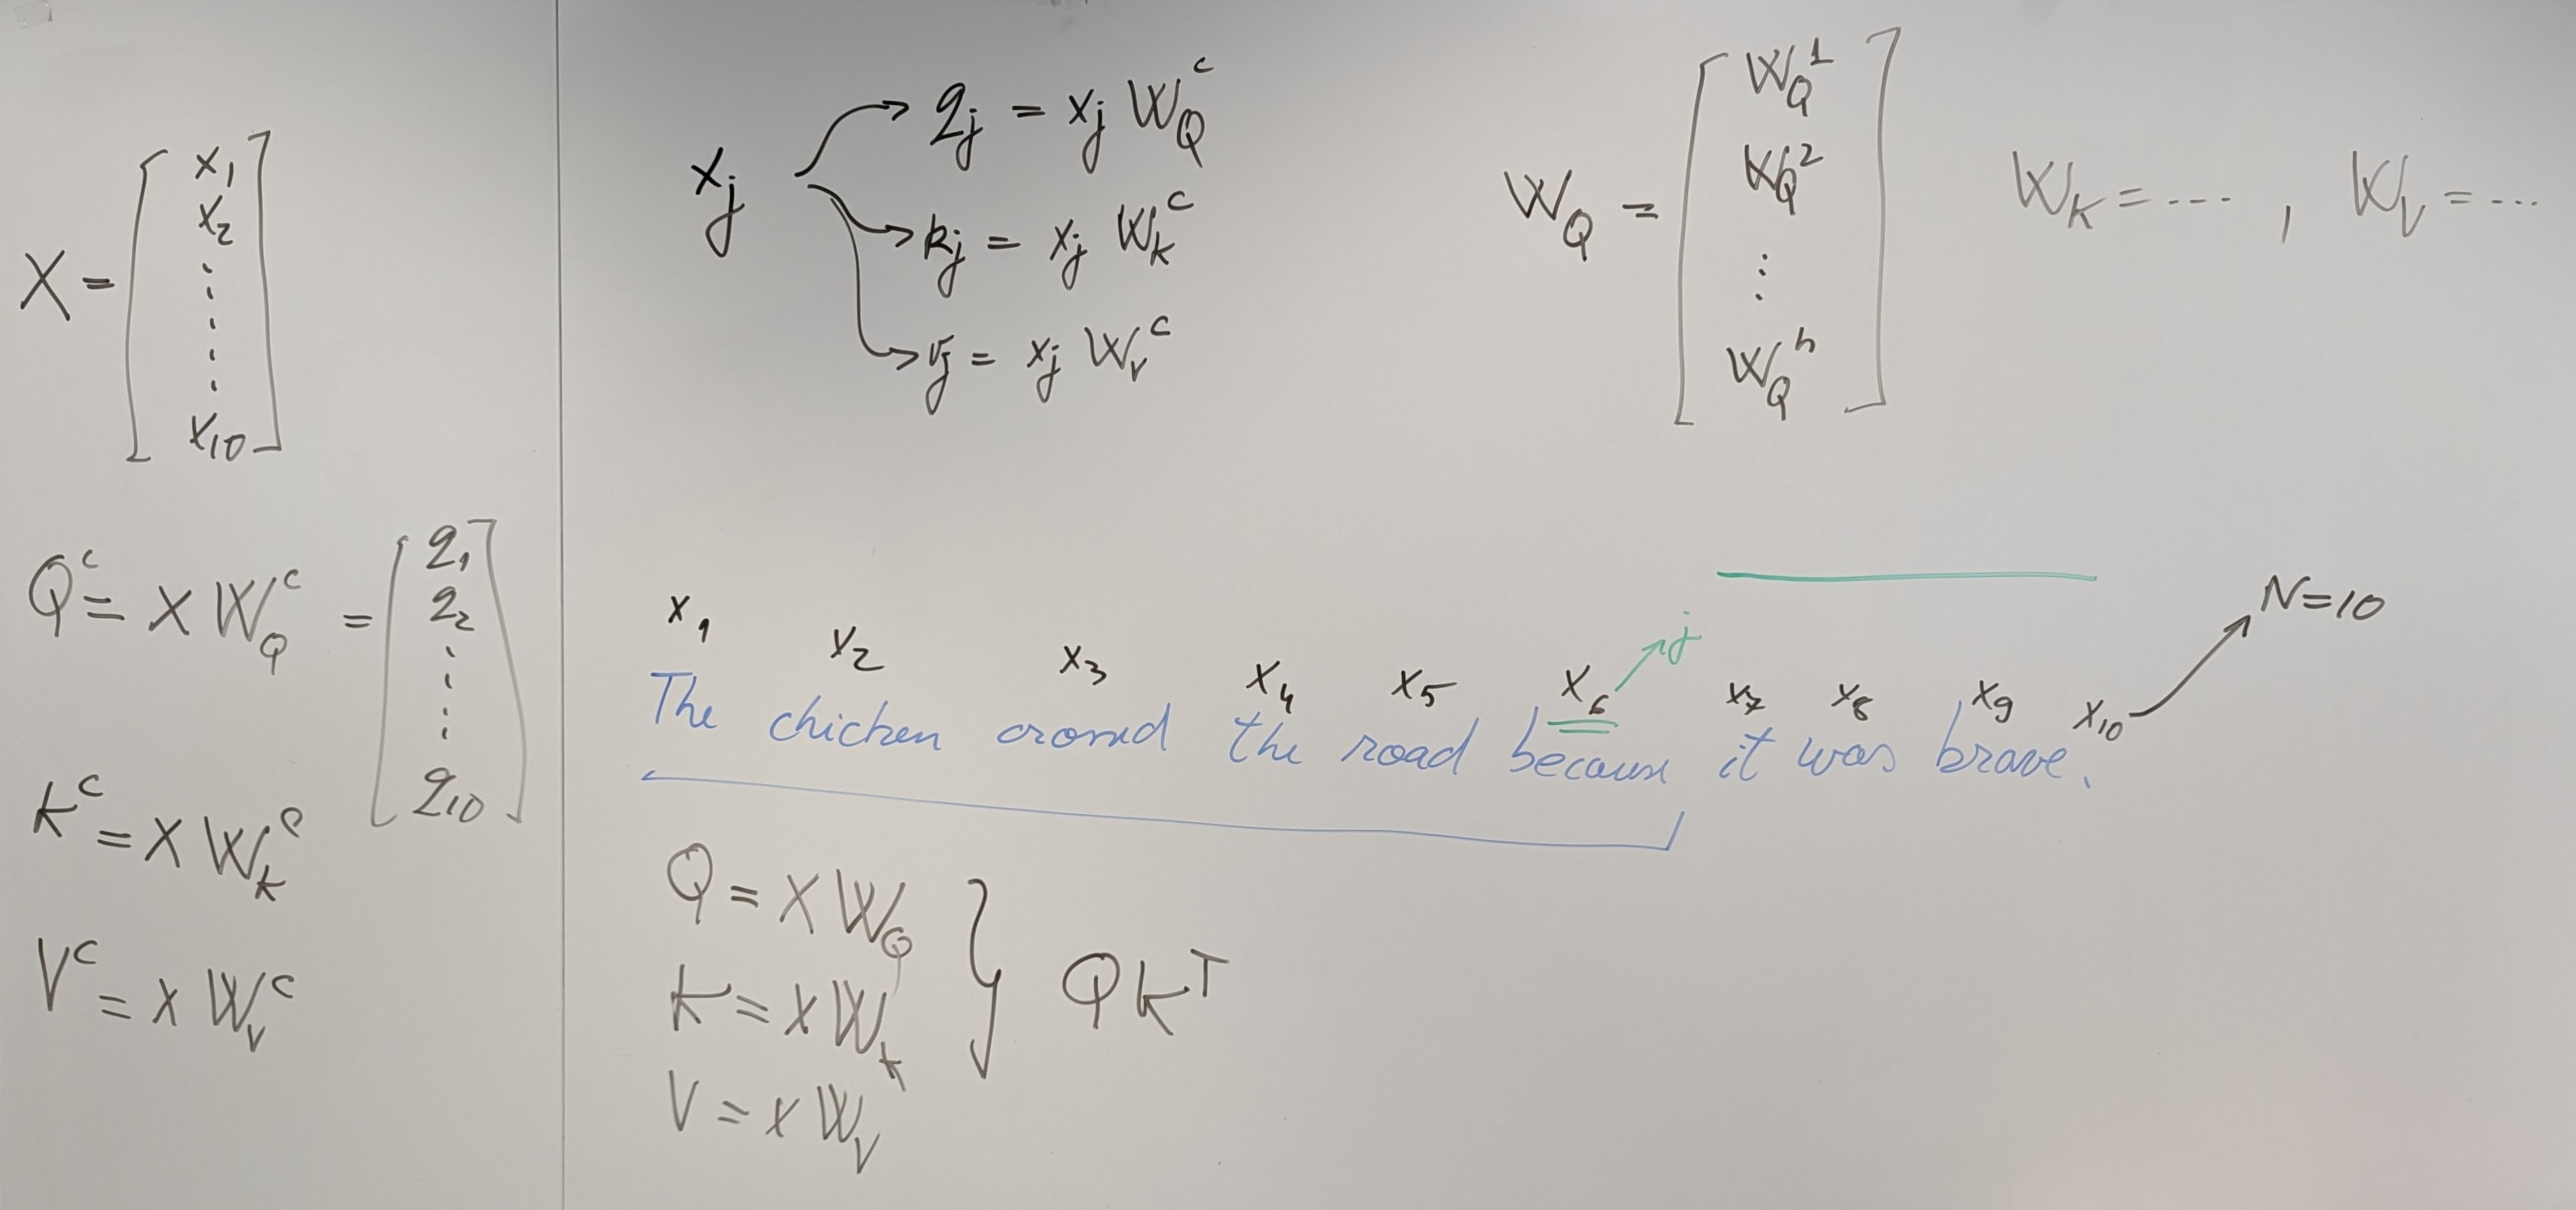 X = [ x₁ x₂ ⋮ x₁₀ ]
Qᶜ = X W_Qᶜ = [ q₁ q₂ ⋮ q₁₀ ]
Kᶜ = X W_Kᶜ
Vᶜ = X W_Vᶜ
x_j → q_j = x_j W_Qᶜ
→ k_j = x_j W_Kᶜ
→ v_j = x_j W_Vᶜ
W_Q = [ W_Q¹ W_Q² ⋮ W_Qʰ ] W_K = ---- , W_V = ---
x₁ x₂ x₃ x₄ x₅ x₆ → j x₇ x₈ x₉ x₁₀ → N=10
The chicken crossed the road because it was brave.
Q = X W_Q
K = X W_K } Q Kᵀ
V = X W_V